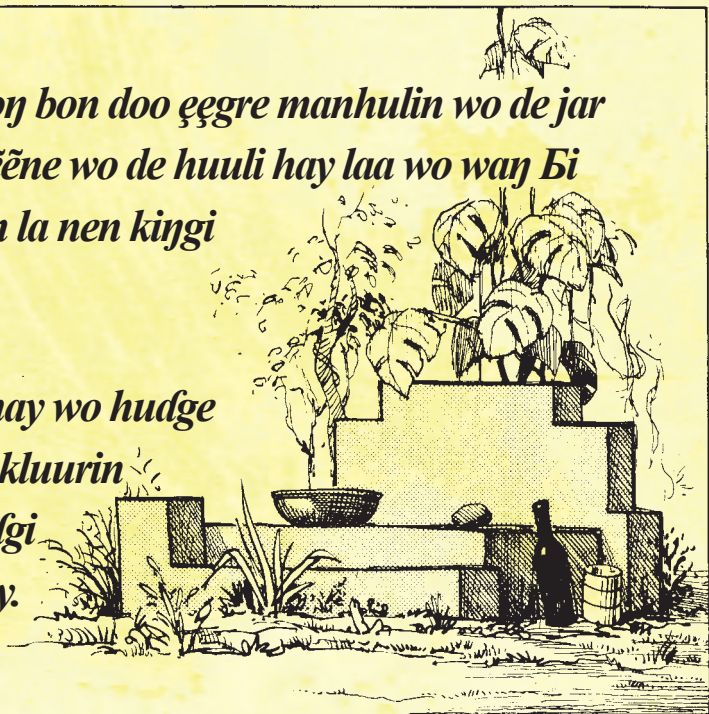 oŋ bon doo ȩȩgre manhulin wo de jar
ẽẽne wo de huuli hay laa wo waŋ Ɓi
la nen kiŋgi
hay wo huɗge
kluurin
ɗgi
y.